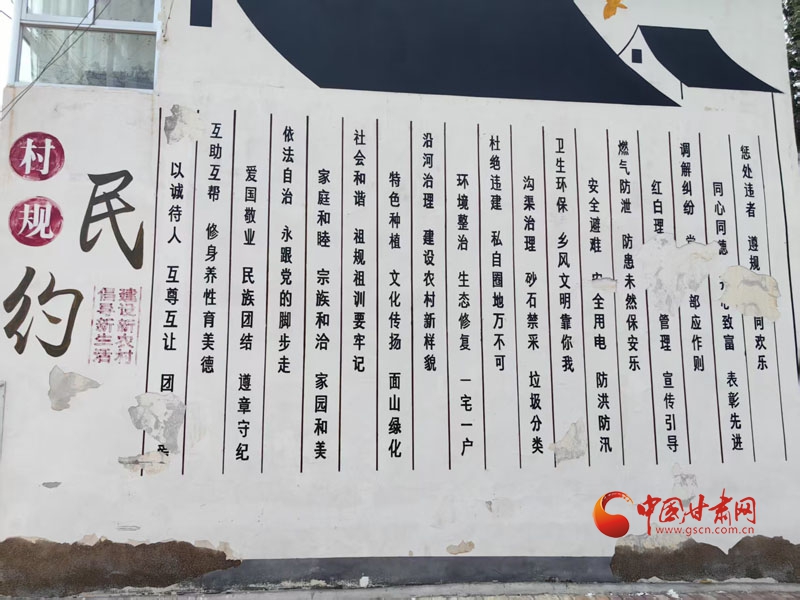 村规
民约
建设新农村
倡导新生活
以诚待人 互尊互让 团
互助互帮 修身养性育美德
爱国敬业 民族团结 遵章守纪
依法自治 永跟党的脚步走
家庭和睦 宗族和洽 家园和美
社会和谐 祖规祖训要牢记
特色种植 文化传扬 面山绿化
沿河治理 建设农村新样貌
环境整治 生态修复 一宅一户
杜绝违建 私自圈地万不可
沟渠治理 砂石禁采 垃圾分类
卫生环保 乡风文明靠你我
安全避难 全用电 防洪防汛
燃气防泄 防患未然保安乐
红白理 管理 宣传引导
调解纠纷 部应作则
同心同德 致富 表彰先进
惩处违者 遵规 同欢乐
中国甘肃网
www.gscn.com.cn